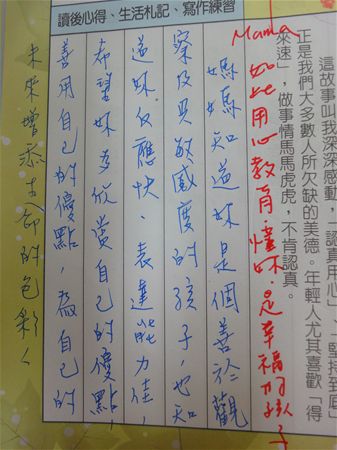 讀後心得、生活札記、寫作練習
這故事叫我深深感動，「認真用心」、「堅持到底」
正是我們大多數人所欠缺的美德。年輕人尤其喜歡「得
來速」，做事情馬馬虎虎，不肯認真。
Mama 如此用心教育懂妳，是幸福的孩子
媽媽知道妳是個善於觀
察及具敏感度的孩子，也知
道妳反應快、表達能力佳，
希望妳多欣賞自己的優點，
善用自己的優點，為自己的
未來增添的色彩。